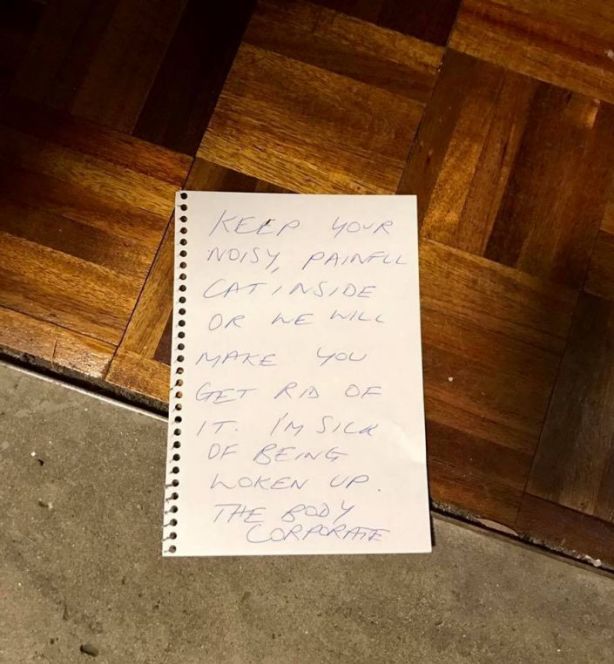 KEEP YOUR
NOISY, PAINFLL
CAT INSIDE
OR WE WILL
MAKE YOU
GET RID OF
IT. I'M SICK
OF BEING
WOKEN UP.
THE BODY
CORPORATE